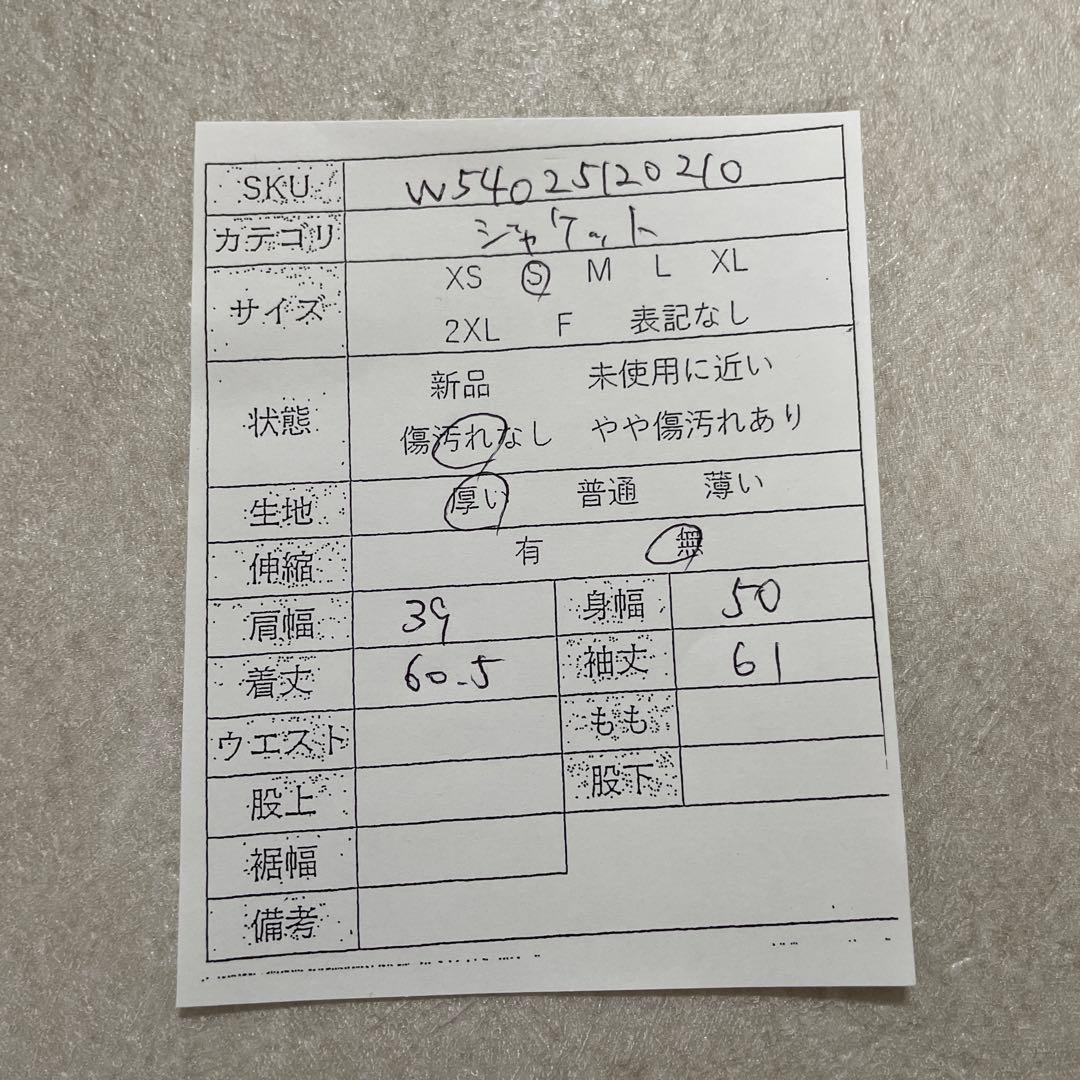 SKU W54025120210
カテゴリ ジャケット
サイズ XS S M L XL
2XL F 表記なし
状態 新品 未使用に近い
傷汚れなし やや傷汚れあり
生地 厚い 普通 薄い
伸縮 有 無
肩幅 39 身幅 50
着丈 60.5 袖丈 61
ウエスト もも
股上 股下
裾幅
備考